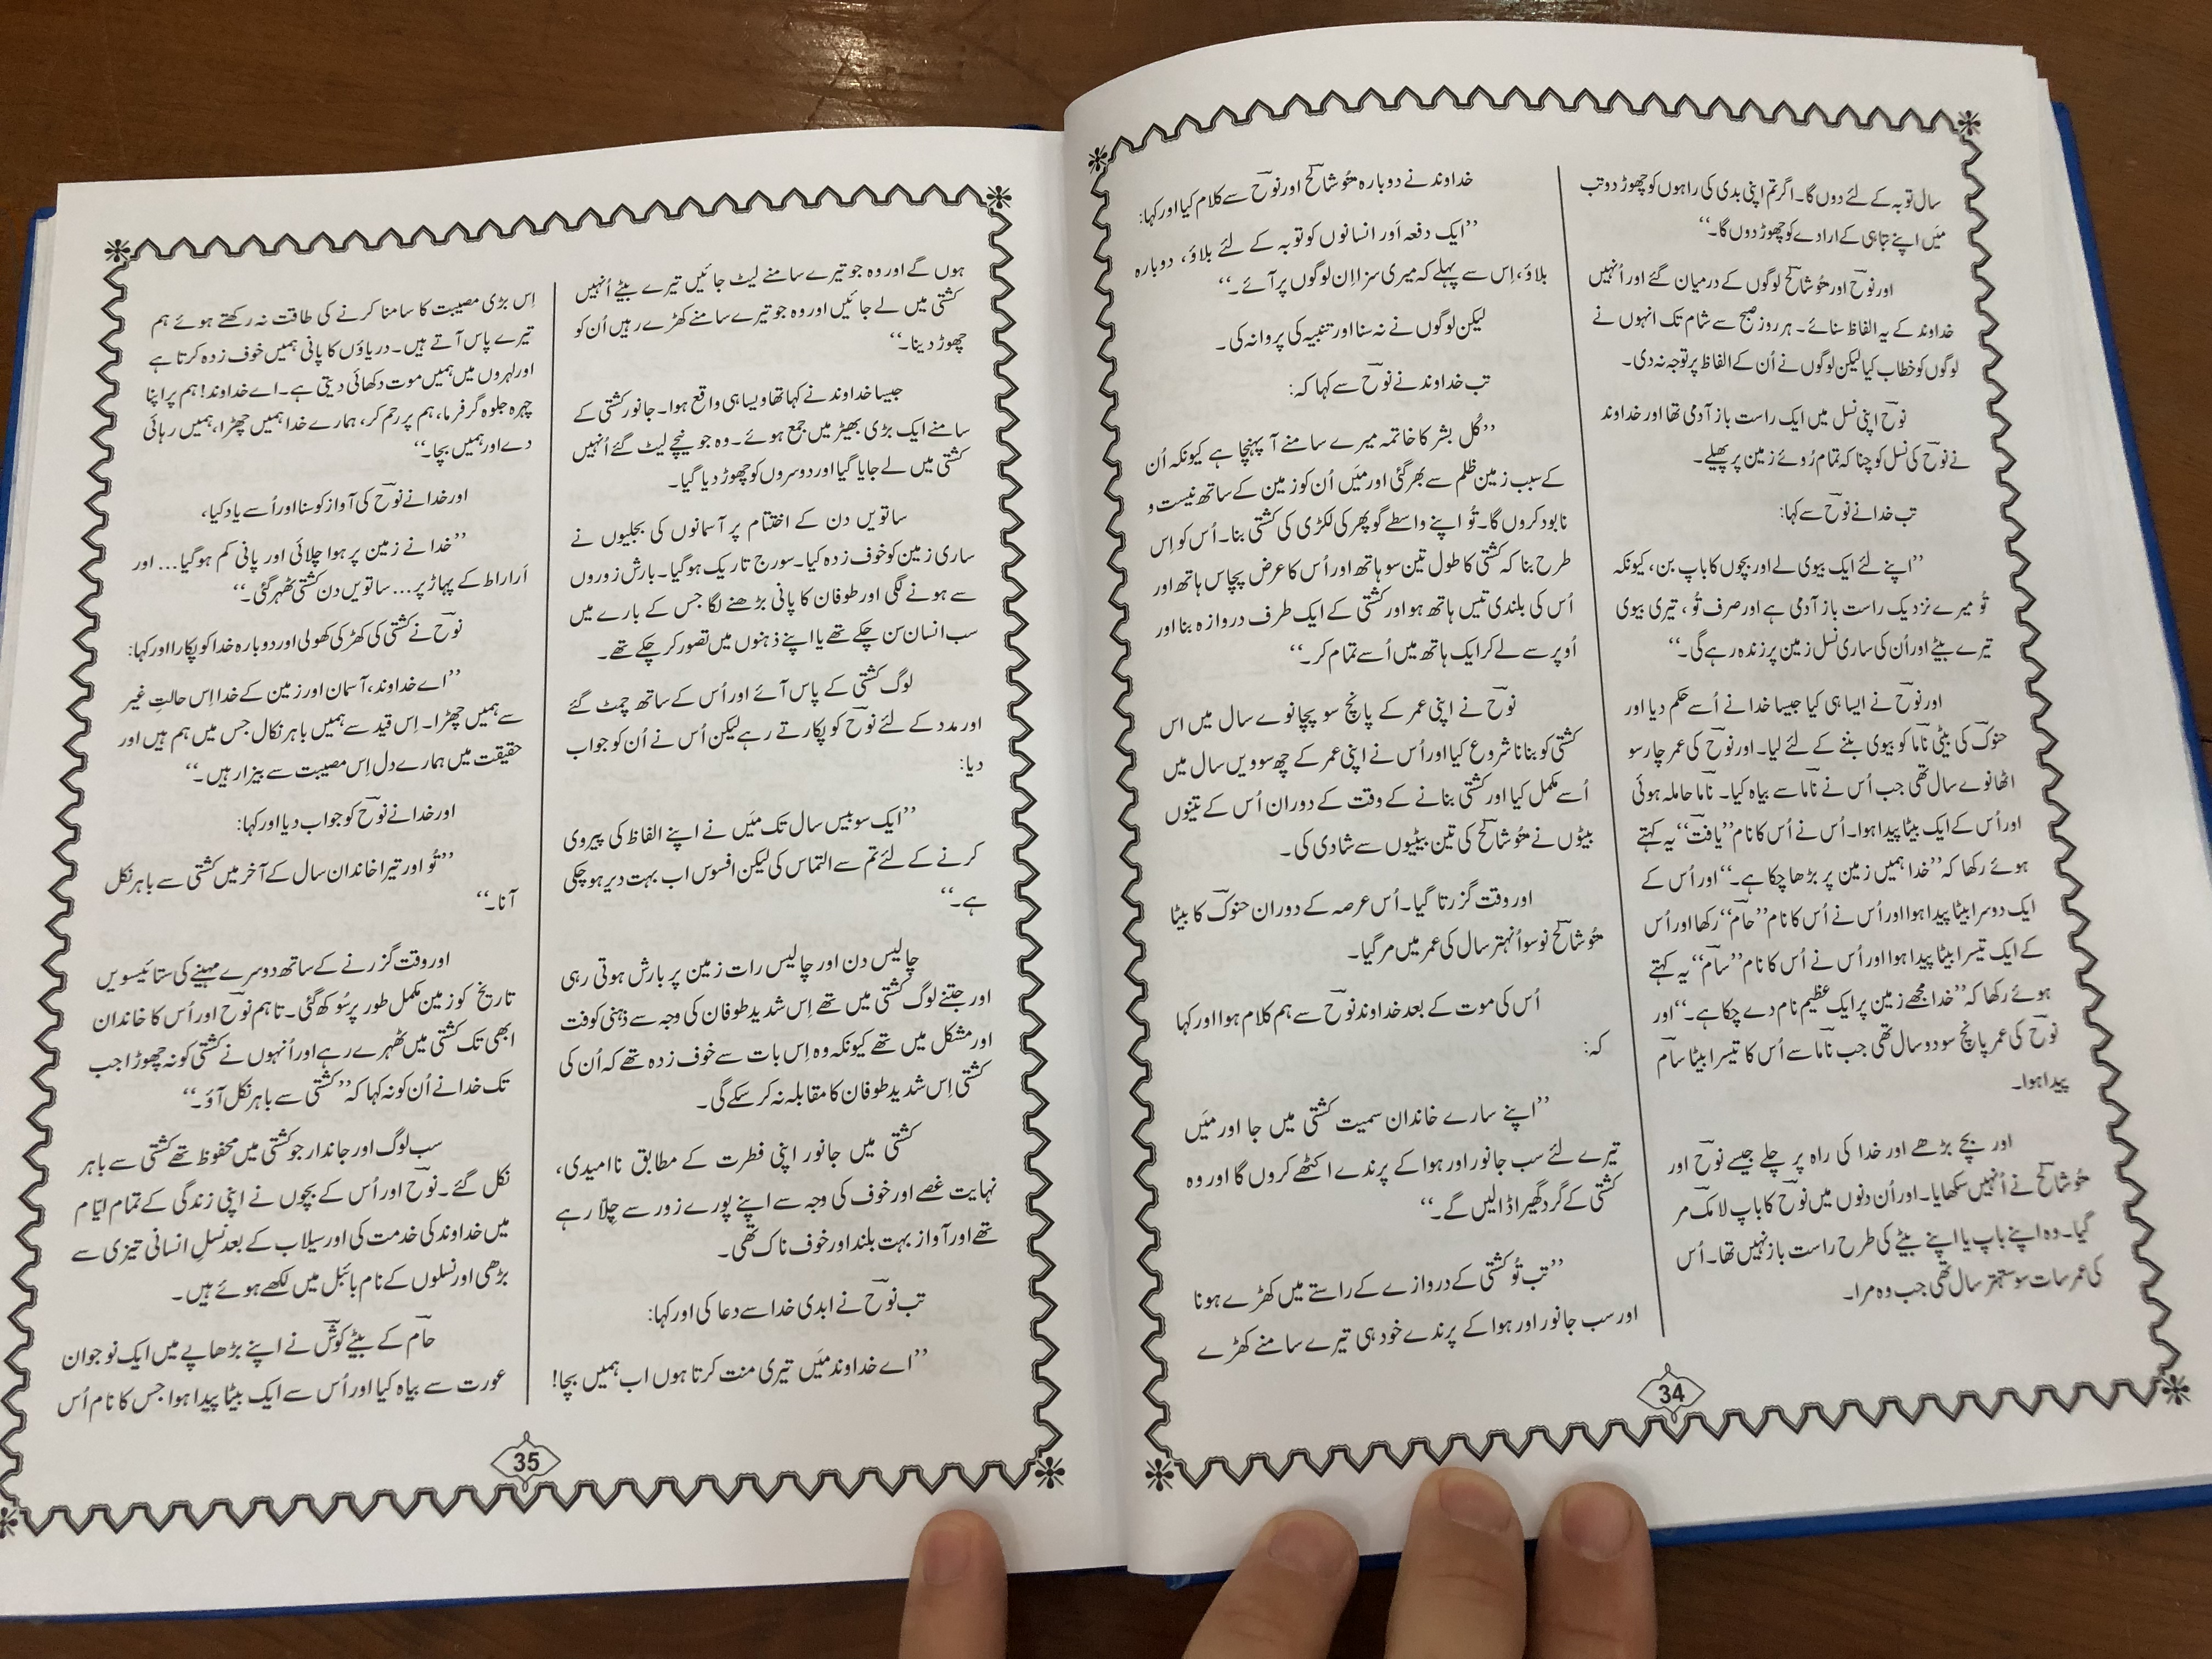 سال توبہ کے لئے دوں گا۔ اگر تم اپنی بدی کی راہوں کو چھوڑ دو تب
مَیں اپنے تباہی کے ارادے کو چھوڑ دوں گا۔“
اور نوحؔ اور متُوشالحؔ لوگوں کے درمیان گئے اور اُنہیں
خداوند کے یہ الفاظ سنائے۔ ہر روز صبح سے شام تک انہوں نے
لوگوں کو خطاب کیا لیکن لوگوں نے اُن کے الفاظ پر توجہ نہ دی۔
نوحؔ اپنی نسل میں ایک راست باز آدمی تھا اور خداوند
نے نوحؔ کی نسل کو چنا کہ تمام رُوئے زمین پر پھیلے۔
تب خدا نے نوحؔ سے کہا:
”اپنے لئے ایک بیوی لے اور بچوں کا باپ بن، کیونکہ
تُو میرے نزدیک راست باز آدمی ہے اور صرف تُو، تیری بیوی
تیرے بیٹے اور اُن کی ساری نسل زمین پر زندہ رہے گی۔“
اور نوحؔ نے ایسا ہی کیا جیسا خدا نے اُسے حکم دیا اور
حنوکؔ کی بیٹی ناؔما کو بیوی بننے کے لئے لیا۔ اور نوحؔ کی عمر چار سو
اٹھانوے سال تھی جب اُس نے ناؔما سے بیاہ کیا۔ ناؔما حاملہ ہوئی
اور اُس کے ایک بیٹا پیدا ہوا۔ اُس نے اُس کا نام ”یافتؔ“ یہ کہتے
ہوئے رکھا کہ ”خدا ہمیں زمین پر بڑھا چکا ہے۔“ اور اُس کے
ایک دوسرا بیٹا پیدا ہوا اور اُس نے اُس کا نام ”حاؔم“ رکھا اور اُس
کے ایک تیسرا بیٹا پیدا ہوا اور اُس نے اُس کا نام ”ساؔم“ یہ کہتے
ہوئے رکھا کہ ”خدا مجھے زمین پر ایک عظیم نام دے چکا ہے۔“ اور
نوحؔ کی عمر پانچ سو دو سال تھی جب ناؔما سے اُس کا تیسرا بیٹا ساؔم
پیدا ہوا۔
اور بچے بڑھے اور خدا کی راہ پر چلے جیسے نوحؔ اور
متُوشالحؔ نے اُنہیں سکھایا۔ اور اُن دنوں میں نوحؔ کا باپ لامکؔ مر
گیا۔ وہ اپنے باپ یا اپنے بیٹے کی طرح راست باز نہیں تھا۔ اُس
کی عمر سات سو ستہتر سال تھی جب وہ مرا۔
خداوند نے دوبارہ متُوشالحؔ اور نوحؔ سے کلام کیا اور کہا:
”ایک دفعہ اَور انسانوں کو توبہ کے لئے بلاؤ، دوبارہ
بلاؤ، اِس سے پہلے کہ میری سزا اِن لوگوں پر آئے۔“
لیکن لوگوں نے نہ سنا اور تنبیہ کی پروا نہ کی۔
تب خداوند نے نوحؔ سے کہا کہ:
”کُل بشر کا خاتمہ میرے سامنے آ پہنچا ہے کیونکہ اُن
کے سبب زمین ظلم سے بھر گئی اور مَیں اُن کو زمین کے ساتھ نیست و
نابود کروں گا۔ تُو اپنے واسطے گوپھر کی لکڑی کی کشتی بنا۔ اُس کو اِس
طرح بنا کہ کشتی کا طول تین سو ہاتھ اور اُس کا عرض پچاس ہاتھ اور
اُس کی بلندی تیس ہاتھ ہو اور کشتی کے ایک طرف دروازہ بنا اور
اُوپر سے لے کر ایک ہاتھ میں اُسے تمام کر۔“
نوحؔ نے اپنی عمر کے پانچ سو پچانوے سال میں اس
کشتی کو بنانا شروع کیا اور اُس نے اپنی عمر کے چھ سوویں سال میں
اُسے مکمل کیا اور کشتی بنانے کے وقت کے دوران اُس کے تینوں
بیٹوں نے متُوشالحؔ کی تین بیٹیوں سے شادی کی۔
اور وقت گزرتا گیا۔ اُس عرصہ کے دوران حنوکؔ کا بیٹا
متُوشالحؔ نو سو اُنہتر سال کی عمر میں مر گیا۔
اُس کی موت کے بعد خداوند نوحؔ سے ہم کلام ہوا اور کہا
کہ:
”اپنے سارے خاندان سمیت کشتی میں جا اور مَیں
تیرے لئے سب جانور اور ہوا کے پرندے اکٹھے کروں گا اور وہ
کشتی کے گرد گھیرا ڈالیں گے۔“
”تب تُو کشتی کے دروازے کے راستے میں کھڑے ہونا
اور سب جانور اور ہوا کے پرندے خود ہی تیرے سامنے کھڑے
34
ہوں گے اور وہ جو تیرے سامنے لیٹ جائیں تیرے بیٹے اُنہیں
کشتی میں لے جائیں اور وہ جو تیرے سامنے کھڑے رہیں اُن کو
چھوڑ دینا۔“
جیسا خداوند نے کہا تھا ویسا ہی واقع ہوا۔ جانور کشتی کے
سامنے ایک بڑی بھیڑ میں جمع ہوئے۔ وہ جو نیچے لیٹ گئے اُنہیں
کشتی میں لے جایا گیا اور دوسروں کو چھوڑ دیا گیا۔
ساتویں دن کے اختتام پر آسمانوں کی بجلیوں نے
ساری زمین کو خوف زدہ کیا۔ سورج تاریک ہو گیا۔ بارش زوروں
سے ہونے لگی اور طوفان کا پانی بڑھنے لگا جس کے بارے میں
سب انسان سن چکے تھے یا اپنے ذہنوں میں تصور کر چکے تھے۔
لوگ کشتی کے پاس آئے اور اُس کے ساتھ چمٹ گئے
اور مدد کے لئے نوحؔ کو پکارتے رہے لیکن اُس نے اُن کو جواب
دیا:
”ایک سو بیس سال تک مَیں نے اپنے الفاظ کی پیروی
کرنے کے لئے تم سے التماس کی لیکن افسوس اب بہت دیر ہو چکی
ہے۔“
چالیس دن اور چالیس رات زمین پر بارش ہوتی رہی
اور جتنے لوگ کشتی میں تھے اِس شدید طوفان کی وجہ سے ذہنی کوفت
اور مشکل میں تھے کیونکہ وہ اِس بات سے خوف زدہ تھے کہ اُن کی
کشتی اِس شدید طوفان کا مقابلہ نہ کر سکے گی۔
کشتی میں جانور اپنی فطرت کے مطابق ناامیدی،
نہایت غصے اور خوف کی وجہ سے اپنے پورے زور سے چلّا رہے
تھے اور آواز بہت بلند اور خوف ناک تھی۔
تب نوحؔ نے ابدی خدا سے دعا کی اور کہا:
”اے خداوند مَیں تیری منت کرتا ہوں اب ہمیں بچا!
اِس بڑی مصیبت کا سامنا کرنے کی طاقت نہ رکھتے ہوئے ہم
تیرے پاس آتے ہیں۔ دریاؤں کا پانی ہمیں خوف زدہ کرتا ہے
اور لہروں میں ہمیں موت دکھائی دیتی ہے۔ اے خداوند! ہم پر اپنا
چہرہ جلوہ گر فرما، ہم پر رحم کر، ہمارے خدا ہمیں چھڑا، ہمیں رہائی
دے اور ہمیں بچا۔“
اور خدا نے نوحؔ کی آواز کو سنا اور اُسے یاد کیا،
”خدا نے زمین پر ہوا چلائی اور پانی کم ہو گیا... اور
اَراراط کے پہاڑ پر... ساتویں دن کشتی ٹھہر گئی۔“
نوحؔ نے کشتی کی کھڑکی کھولی اور دوبارہ خدا کو پکارا اور کہا:
”اے خداوند، آسمان اور زمین کے خدا اِس حالتِ غیر
سے ہمیں چھڑا۔ اِس قید سے ہمیں باہر نکال جس میں ہم ہیں اور
حقیقت میں ہمارے دل اِس مصیبت سے بیزار ہیں۔“
اور خدا نے نوحؔ کو جواب دیا اور کہا:
”تُو اور تیرا خاندان سال کے آخر میں کشتی سے باہر نکل
آنا۔“
اور وقت گزرنے کے ساتھ دوسرے مہینے کی ستائیسویں
تاریخ کو زمین مکمل طور پر سُوکھ گئی۔ تاہم نوحؔ اور اُس کا خاندان
ابھی تک کشتی میں ٹھہرے رہے اور اُنہوں نے کشتی کو نہ چھوڑا جب
تک خدا نے اُن کو نہ کہا کہ ”کشتی سے باہر نکل آؤ۔“
سب لوگ اور جاندار جو کشتی میں محفوظ تھے کشتی سے باہر
نکل گئے۔ نوحؔ اور اُس کے بچوں نے اپنی زندگی کے تمام ایّام
میں خداوند کی خدمت کی اور سیلاب کے بعد نسلِ انسانی تیزی سے
بڑھی اور نسلوں کے نام بائبل میں لکھے ہوئے ہیں۔
حاؔم کے بیٹے کوشؔ نے اپنے بڑھاپے میں ایک نوجوان
عورت سے بیاہ کیا اور اُس سے ایک بیٹا پیدا ہوا جس کا نام اُس
35